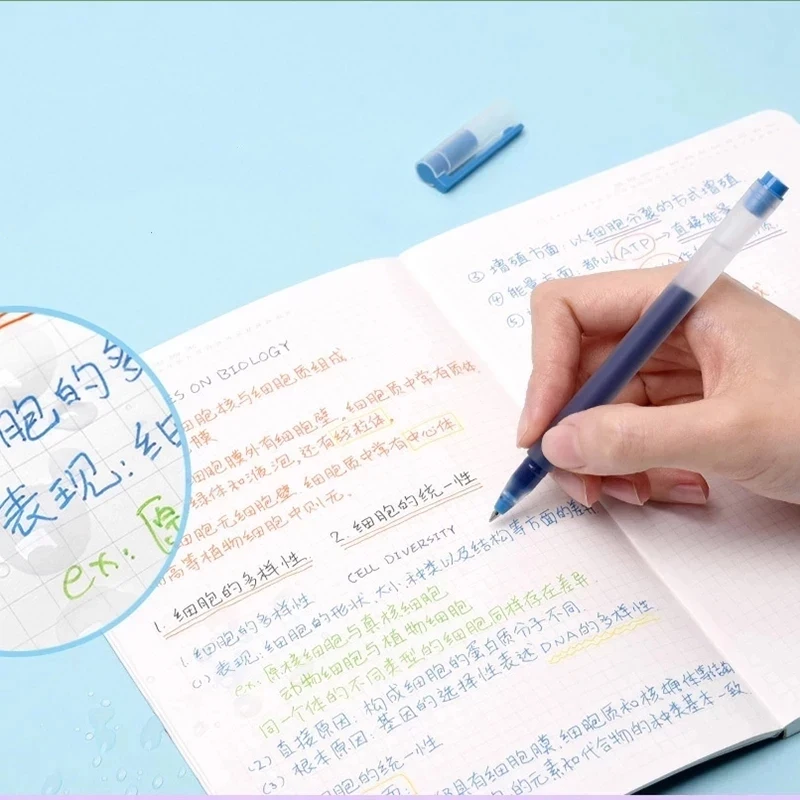 ES ON BIOLOGY
细胞核与细胞质组成
膜
细胞膜外有细胞壁，细胞质中常有质体
绿体和液泡，还有线粒体，
细胞无细胞壁，细胞质中常有中心体
高等植物细胞中则无．
1. 细胞的多样性
2. 细胞的统一性
CELL DIVERSITY
1. 细胞的多样性
(1) 表现：细胞的形状、大小、种类以及结构等方面的差异
ex：原核细胞与真核细胞
动物细胞与植物细胞
同一个体的不同类型的细胞同样存在差异．
(2) 直接原因：构成细胞的蛋白质分子不同．
(3) 根本原因：基因的选择性表达 DNA的多样性
细胞的统一性
具有细胞膜、细胞质和核
的元素和化合物的种类基本一致
③ 增殖方面：以细胞分裂的方式增殖
④ 能量方面：都以ATP→直接能量
⑤
胞的多
表现：细
ex：原